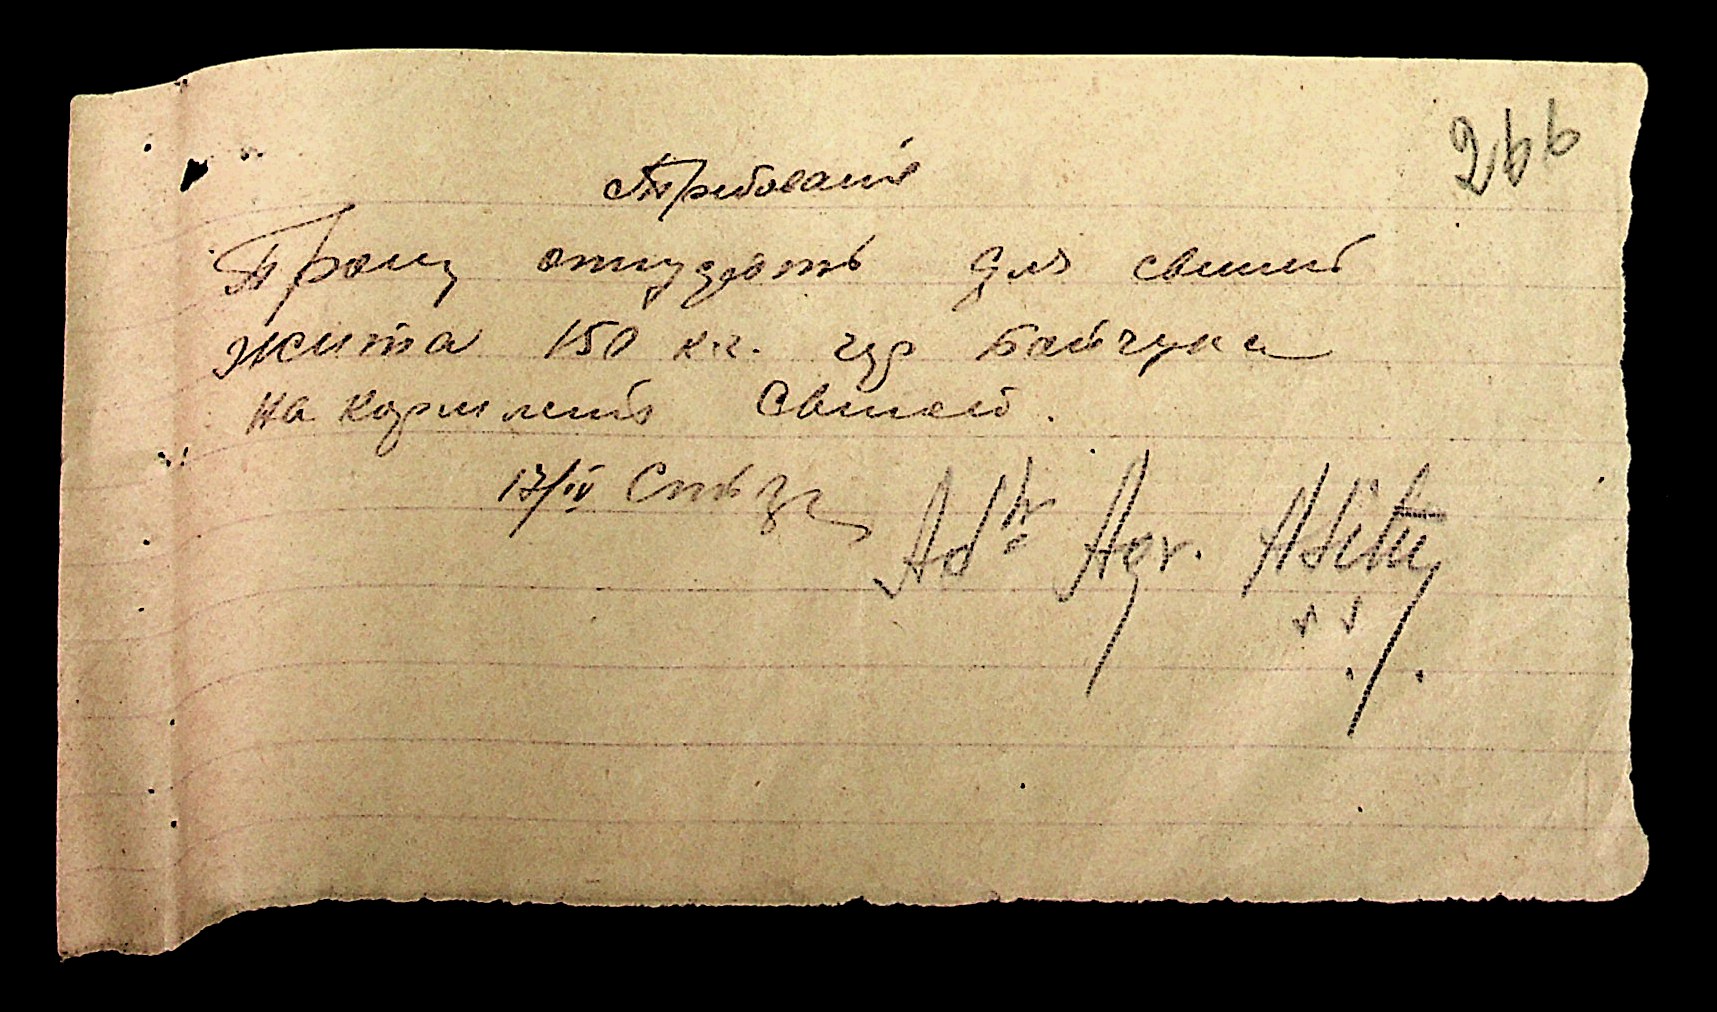 266
Требование
Прошу отпустить для свиней
жита 150 кг. гур Байчука
на кормление свиней.
17/IV
Adr Agr.